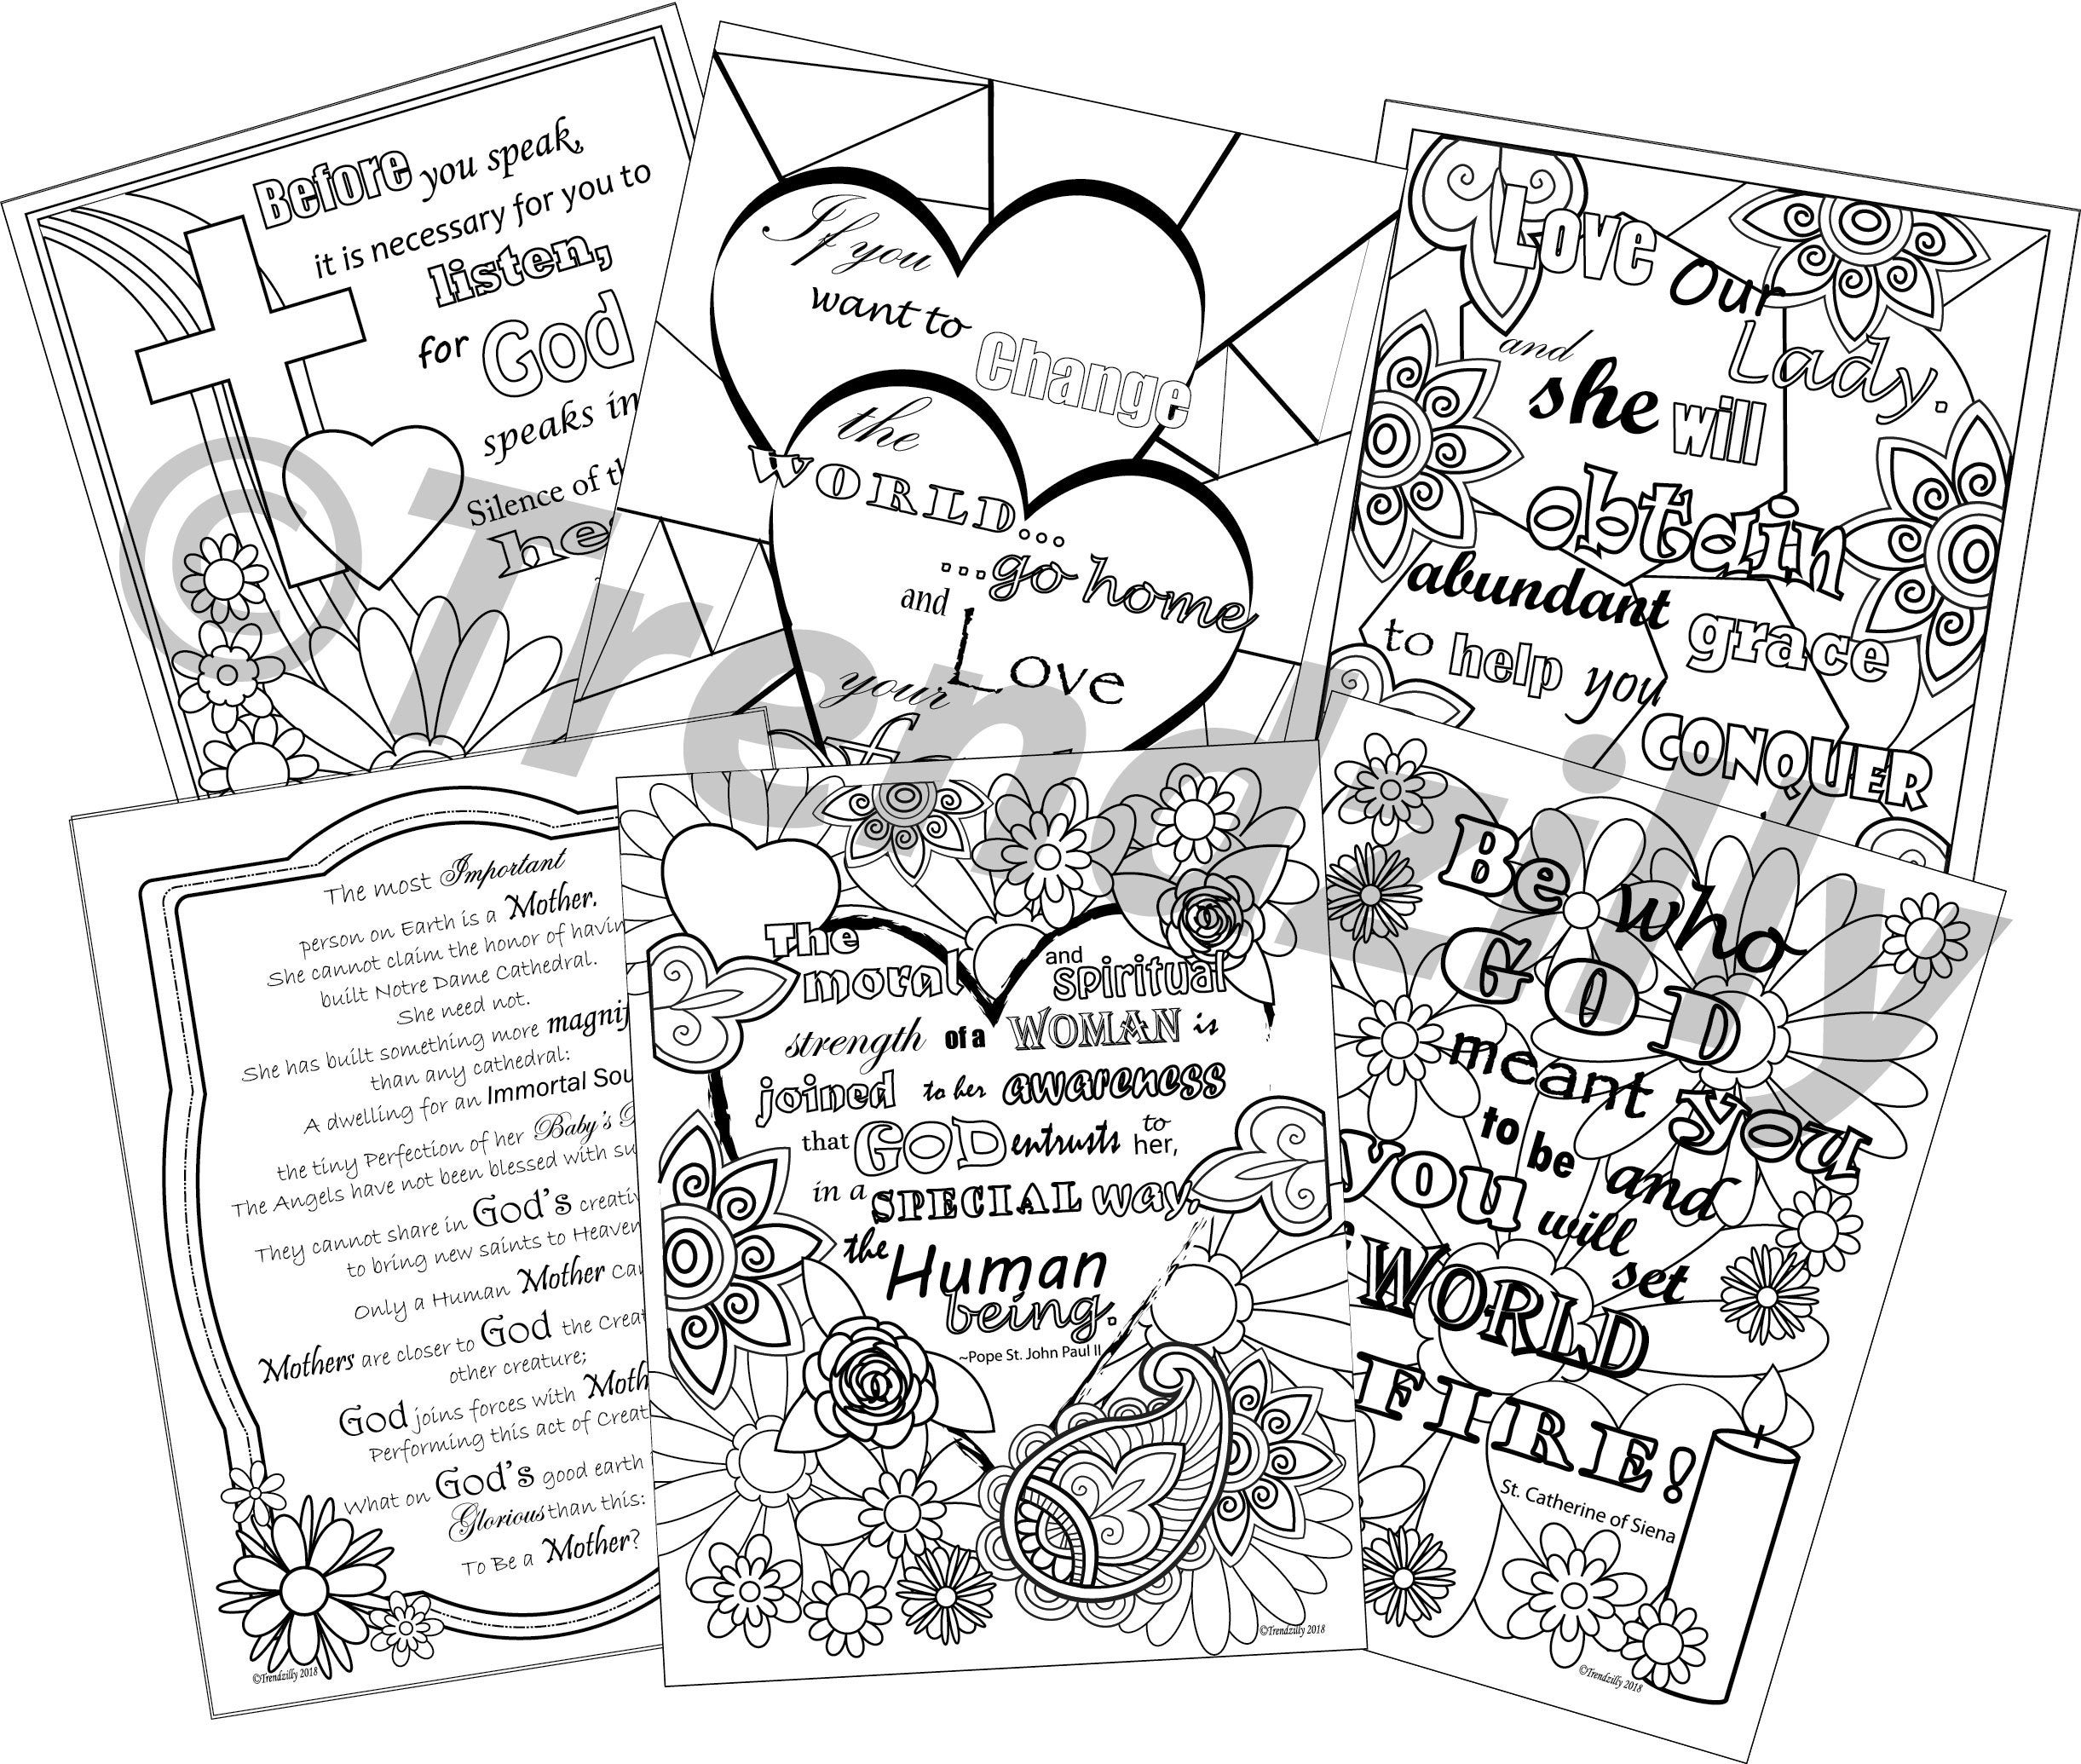 Before you speak,
it is necessary for you to
listen,
for God
speaks in
Silence of
If you
want to Change
the
WORLD...
...go home
and Love
your
Love Our
Lady.
and
she will
obtain
abundant grace
to help you
CONQUER
The most Important
person on Earth is a Mother.
She cannot claim the honor of
built Notre Dame Cathedral.
She need not.
She has built something more
than any cathedral:
A dwelling for an Immortal
the tiny Perfection of her Baby's
The Angels have not been blessed with
They cannot share in God's
to bring new saints to
Only a Human Mother
Mothers are closer to God the
other creature;
God joins forces with
Performing this act of
What on God's good earth
Glorious than this:
To Be a Mother?
©Trendzilly 2018
The
moral and spiritual
strength of a WOMAN is
joined to her awareness
that GOD entrusts to her,
in a SPECIAL way,
the Human
being.
~Pope St. John Paul II
©Trendzilly 2018
Be who
GOD
meant you
to be and
you will set
WORLD
FIRE!
St. Catherine of Siena
©Trendzilly 2018
©Trendzilly